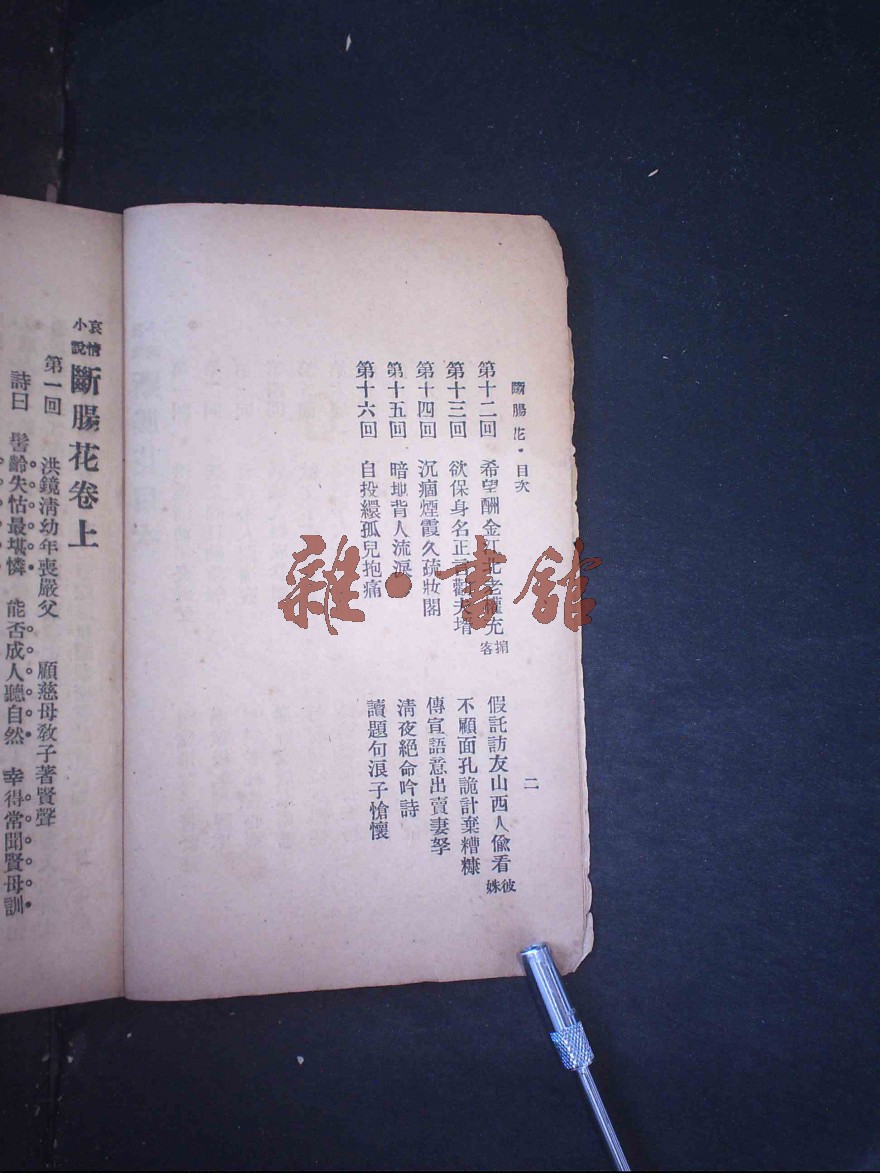 斷腸花・目次
二
第十二回 希望酬金江北老權充掮客 假託訪友山西人偸看彼姝
第十三回 欲保身名正言勸夫壻 不顧面孔詭計棄糟糠
第十四回 沉痼煙霞久疏妝閣 傳宣語意出賣妻孥
第十五回 暗地背人流淚 淸夜絕命吟詩
第十六回 自投繯孤兒抱痛 讀題句浪子愴懷
哀情小說 斷腸花卷上
第一回 洪鏡淸幼年喪嚴父 顧慈母敎子著賢聲
詩曰 髫齡失怙最堪憐 能否成人聽自然 幸得常聞賢母訓
雜・書館